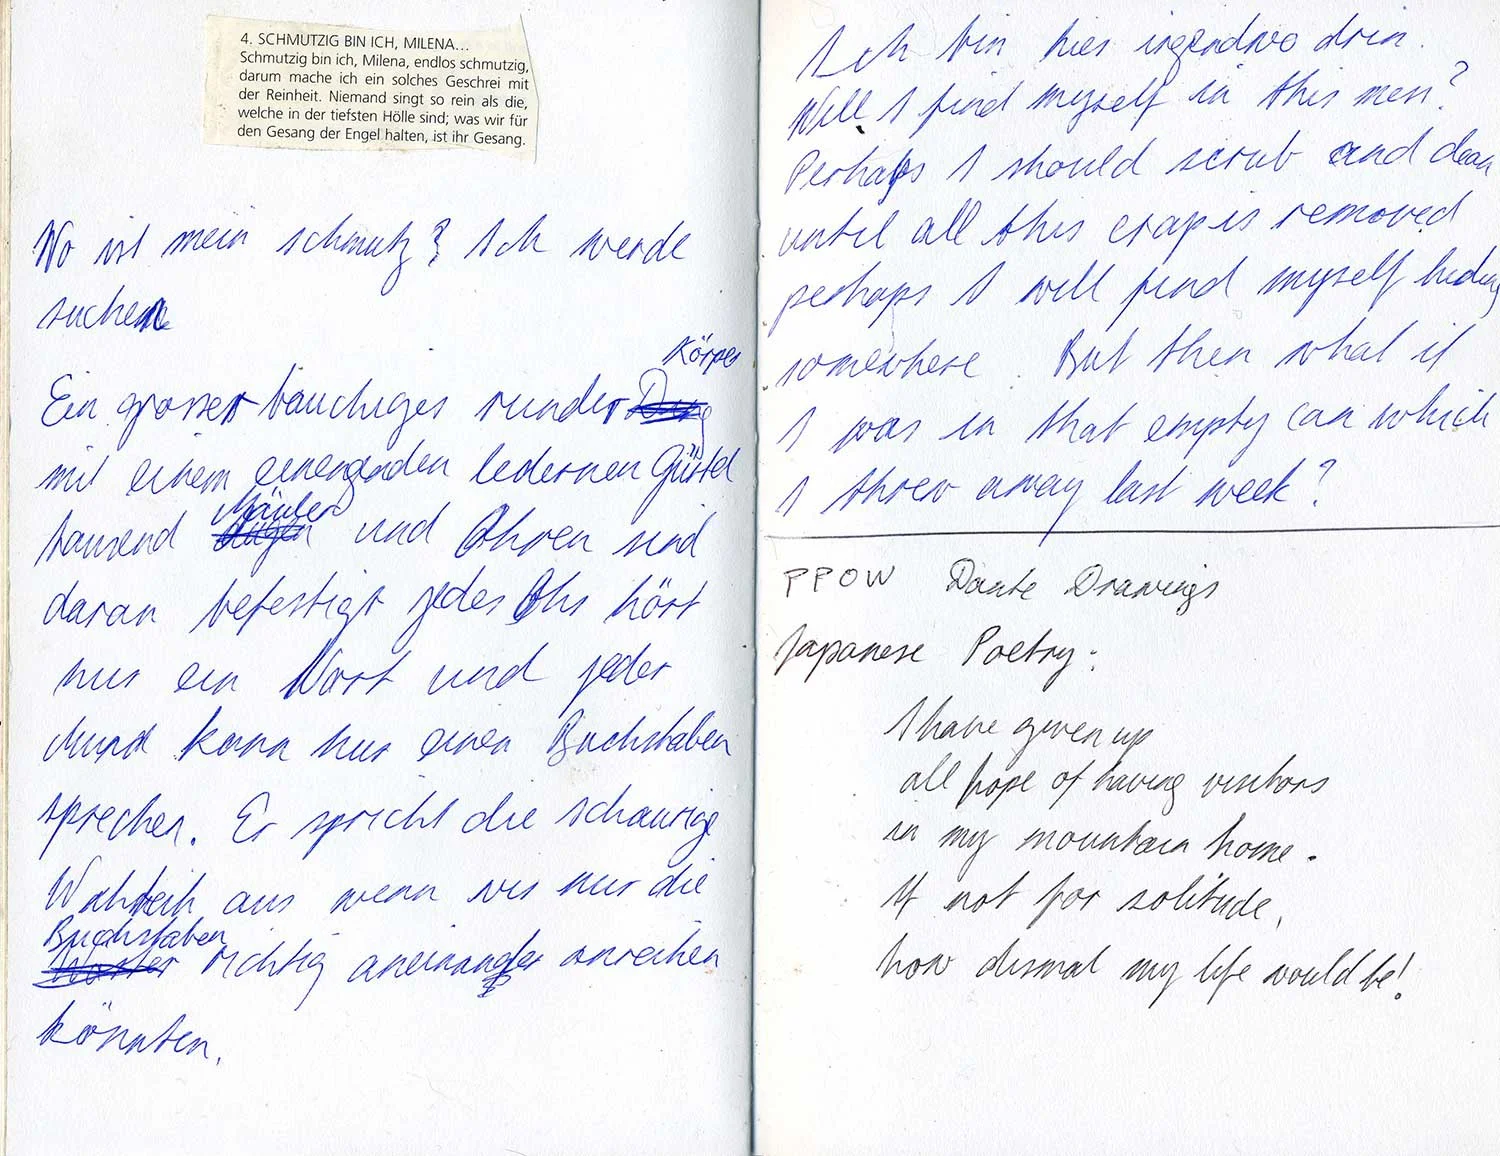 4. SCHMUTZIG BIN ICH, MILENA...
Schmutzig bin ich, Milena, endlos schmutzig,
darum mache ich ein solches Geschrei mit
der Reinheit. Niemand singt so rein als die,
welche in der tiefsten Hölle sind; was wir für
den Gesang der Engel halten, ist ihr Gesang.
Wo ist mein schmutz? Ich werde
suchen
Körper
Ein grosser bauchiges runder Ding
mit einem einengenden ledernen Gürtel
Mäuler
tausend Augen und Ohren sind
daran befestigt jedes Ohr hört
nur ein Wort und jeder
Mund kann nur einen Buchstaben
sprechen. Er spricht die schaurige
Wahrheit aus wenn wir nur die
Buchstaben
Wörter richtig aneinander anreihen
könnten.
Ich bin hier irgendwo drin.
Will I find myself in this mess?
Perhaps I should scrub and clean
until all this crap is removed
perhaps I will find myself hiding
somewhere. But then what if
I was in that empty can which
I threw away last week?
PPOW Dante Drawings
Japanese Poetry:
I have given up
all hope of having visitors
in my mountain home.
If not for solitude,
how dismal my life would be!